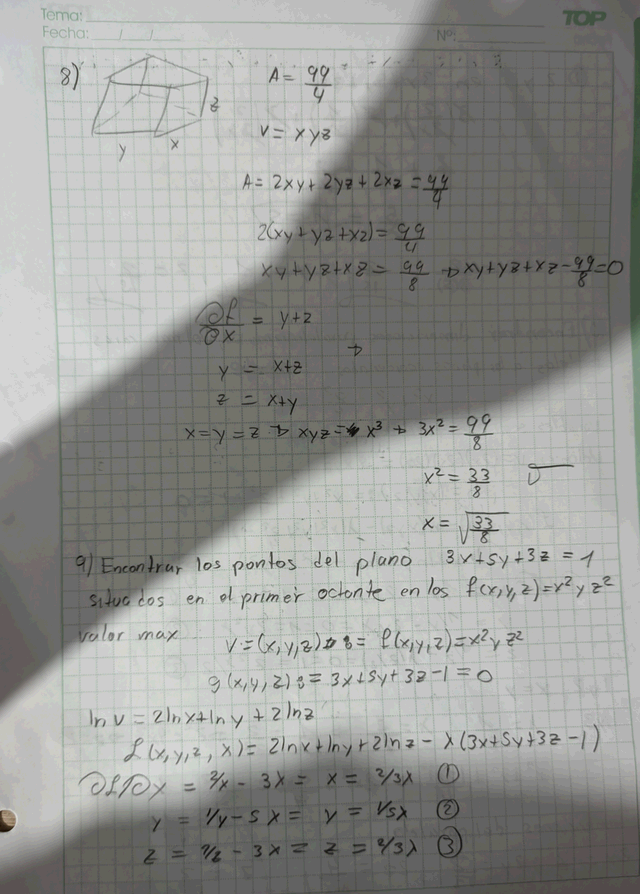 Tema:
TOP
Fecha: / /
Nº:
8)
A = 99/4
z
y
x
V = xyz
A = 2xy + 2yz + 2xz = 99/4
2(xy + yz + xz) = 99/4
xy + yz + xz = 99/8 → xy + yz + xz - 99/8 = 0
∂f/∂x = y + z
y = x + z
z = x + y
x = y = z → xyz = x³ → 3x² = 99/8
x² = 33/8
x = √33/8
9) Encontrar los pontos del plano 3x + 5y + 3z = 1
situados en el primer octante en los f(x,y,z) = x² y z²
valor max
V = (x,y,z) := f(x,y,z) = x² y z²
g(x,y,z) := 3x + 5y + 3z - 1 = 0
ln v = 2lnx + lny + 2lnz
L(x,y,z,λ) = 2lnx + lny + 2lnz - λ(3x + 5y + 3z - 1)
∂L/∂x = 2/x - 3λ = x = 2/3λ ①
y = 1/y - 5λ = y = 1/5λ ②
z = 2/z - 3λ = z = 2/3λ ③